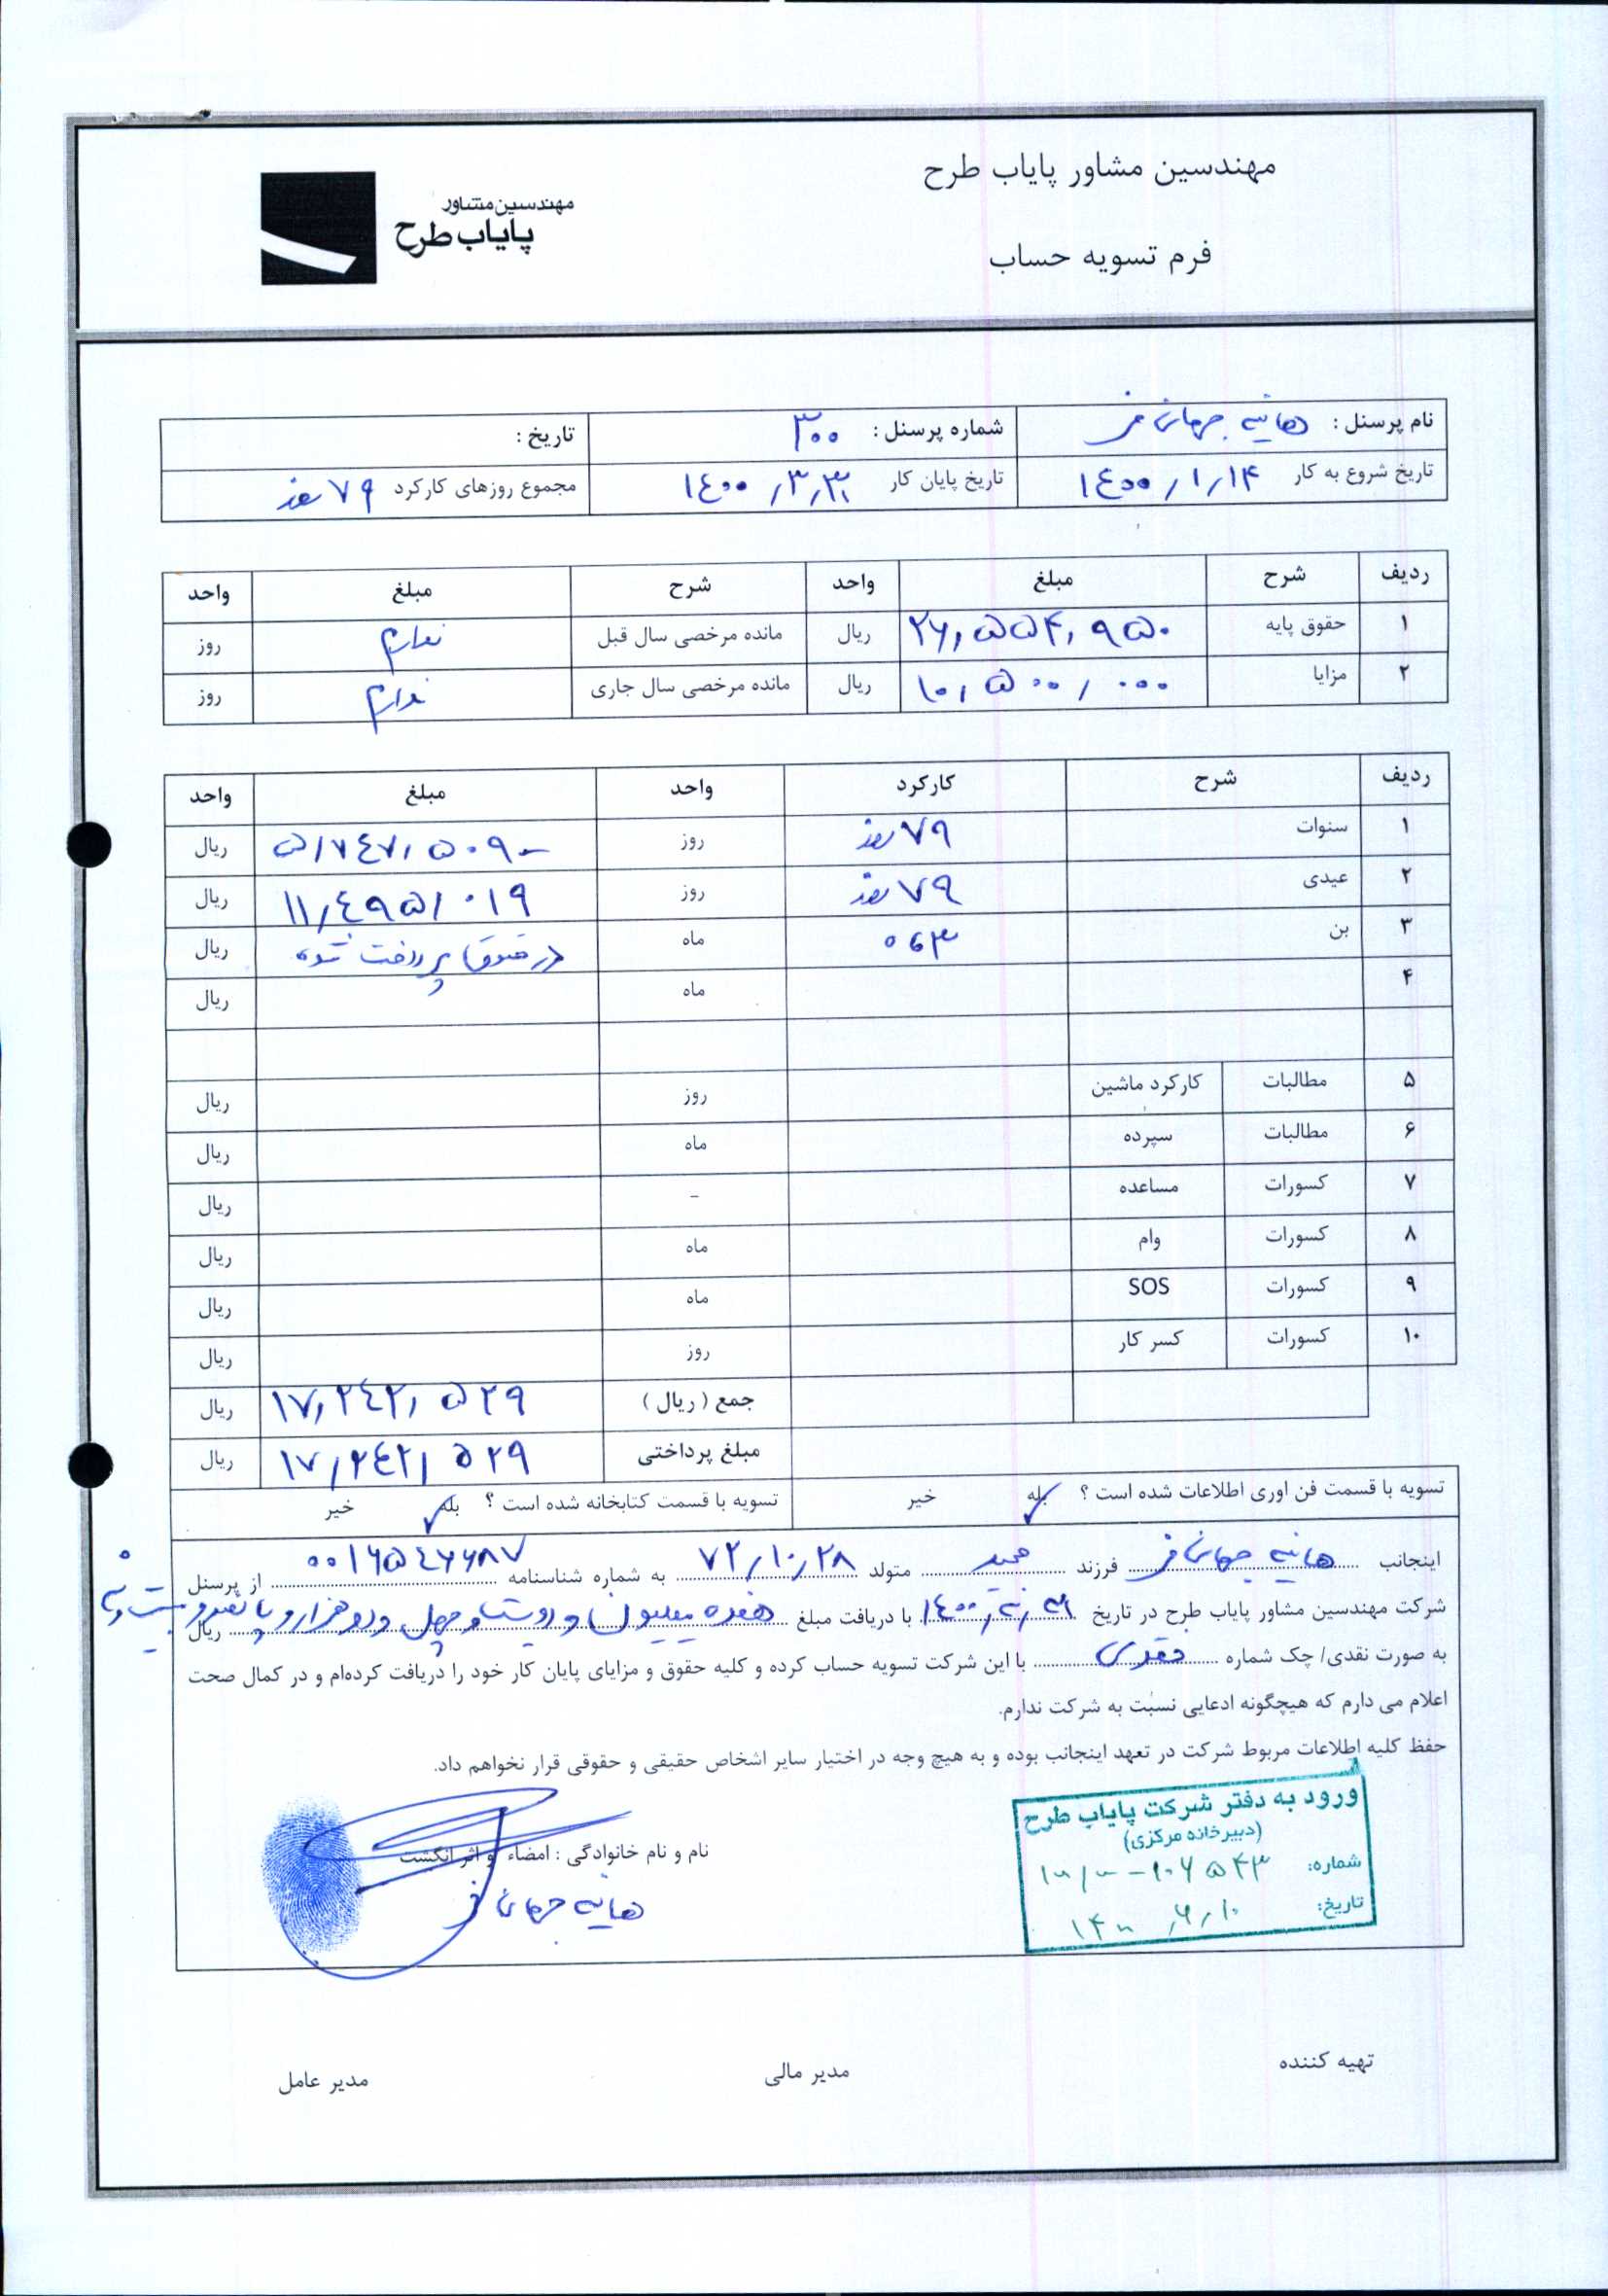 مهندسین مشاور پایاب طرح
مهندسین مشاور
پایاب طرح
فرم تسویه حساب
نام پرسنل : هانیه جهانی فر شماره پرسنل : ۳۰۰ تاریخ :
تاریخ شروع به کار ۱۴۰۰/۱/۱۴ تاریخ پایان کار ۱۴۰۰/۳/۳۱ مجموع روزهای کارکرد ۷۹ روز
ردیف شرح مبلغ واحد شرح مبلغ واحد
۱ حقوق پایه ۲۶,۵۵۴,۹۵۰ ریال مانده مرخصی سال قبل ندارم روز
۲ مزایا ۱۰,۵۰۰,۰۰۰ ریال مانده مرخصی سال جاری ندارم روز
ردیف شرح کارکرد واحد مبلغ واحد
۱ سنوات ۷۹ روز روز ۵,۷۴۷,۵۰۹ ریال
۲ عیدی ۷۹ روز روز ۱۱,۴۹۵,۰۱۹ ریال
۳ بن ماه در حقوق پرداخت شده ریال
۴ ماه ریال
۵ مطالبات کارکرد ماشین روز ریال
۶ مطالبات سپرده ماه ریال
۷ کسورات مساعده - ریال
۸ کسورات وام ماه ریال
۹ کسورات SOS ماه ریال
۱۰ کسورات کسر کار روز ریال
جمع ( ریال ) ۱۷,۲۴۲,۵۲۹ ریال
مبلغ پرداختی ۱۷,۲۴۲,۵۲۹ ریال
تسویه با قسمت فن اوری اطلاعات شده است ؟ بله خیر تسویه با قسمت کتابخانه شده است ؟ بله خیر
اینجانب هانیه جهانی فر فرزند مجید متولد ۷۲/۱۰/۲۸ به شماره شناسنامه ۰۰۱۶۵۴۶۶۸۷ از پرسنل
شرکت مهندسین مشاور پایاب طرح در تاریخ ۱۴۰۰ با دریافت مبلغ هفده میلیون و دویست و چهل و دو هزار و پانصد و بیست و نه ریال
به صورت نقدی/ چک شماره نقدی با این شرکت تسویه حساب کرده و کلیه حقوق و مزایای پایان کار خود را دریافت کرده‌ام و در کمال صحت
اعلام می دارم که هیچگونه ادعایی نسبت به شرکت ندارم.
حفظ کلیه اطلاعات مربوط شرکت در تعهد اینجانب بوده و به هیچ وجه در اختیار سایر اشخاص حقیقی و حقوقی قرار نخواهم داد.
ورود به دفتر شرکت پایاب طرح
(دبیرخانه مرکزی)
شماره:
تاریخ: ۱۴۰۰/۶/۱۰
نام و نام خانوادگی : امضاء و اثر انگشت
هانیه جهانی فر
تهیه کننده مدیر مالی مدیر عامل